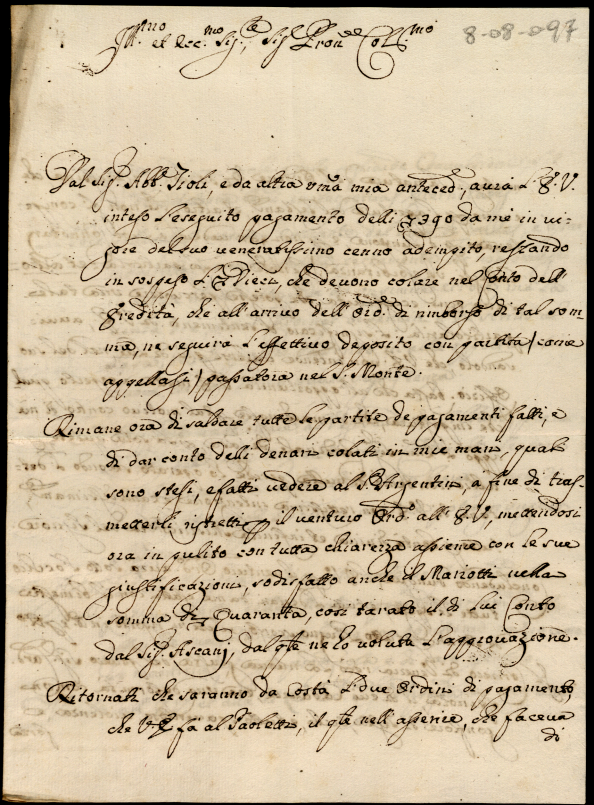 Ill.mo et Ecc.mo Sig.re, Sig.r Pron.e Col.mo
8-08-097
Dal Sig.r Abb.e Tioli, e da altra vma mia anteced.e, avrà L'E. V.
inteso l'eseguito pagamento delli 390 da me in vi-
gore del suo veneratissimo cenno adempito, restando
in sospeso L Dieci, che devono colare nel Conto dell'
Eredità, che all'arrivo dell'Ord.e di rimborso di tal som-
ma, ne seguirà l'effettivo deposito con partita / come
appellasi / passatora nel S. Monte.
Rimane ora di saldare tutte le partite de pagamenti fatti, e
di dar conto deli denari colati in mie mani, quali
sono stesi, e fatti vedere al S.r Argentini, a fine di tras-
metterli ristretti il venturo Ord.o all'E. V., mettendosi
ora in pulito con tutta chiarezza assieme con le sue
giustificazioni, sodisfatto anche il Mariotti nella
somma di Quaranta, così tarato il di Lui Conto
dal Sig.r Ascani, dal qle ne ho voluta l'approvazione.
Ritornati che saranno da Costà L due Ordini di pagamento,
che V.E. fa al Paoletti, il qle nell'asserire, che faceva
di